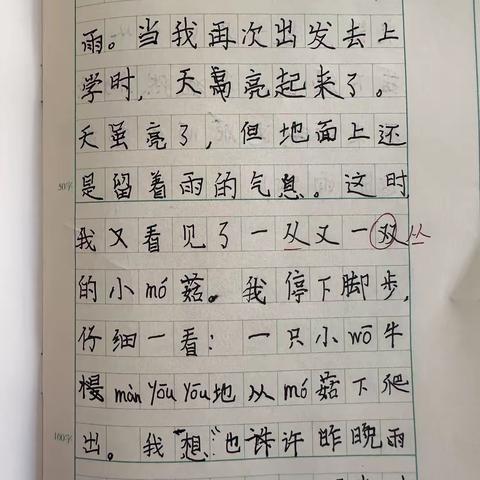 雨。当我再次出发去上
学时，天亮起来了。
天虽亮了，但地面上还
50字
是留着雨的气息。这时
我又看见了一从又一双丛
的小mó菇。我停下脚步，
仔细一看：一只小wō牛
慢màn yōu yōu地从mó菇下爬
100字
出。我"想"也许昨晚雨